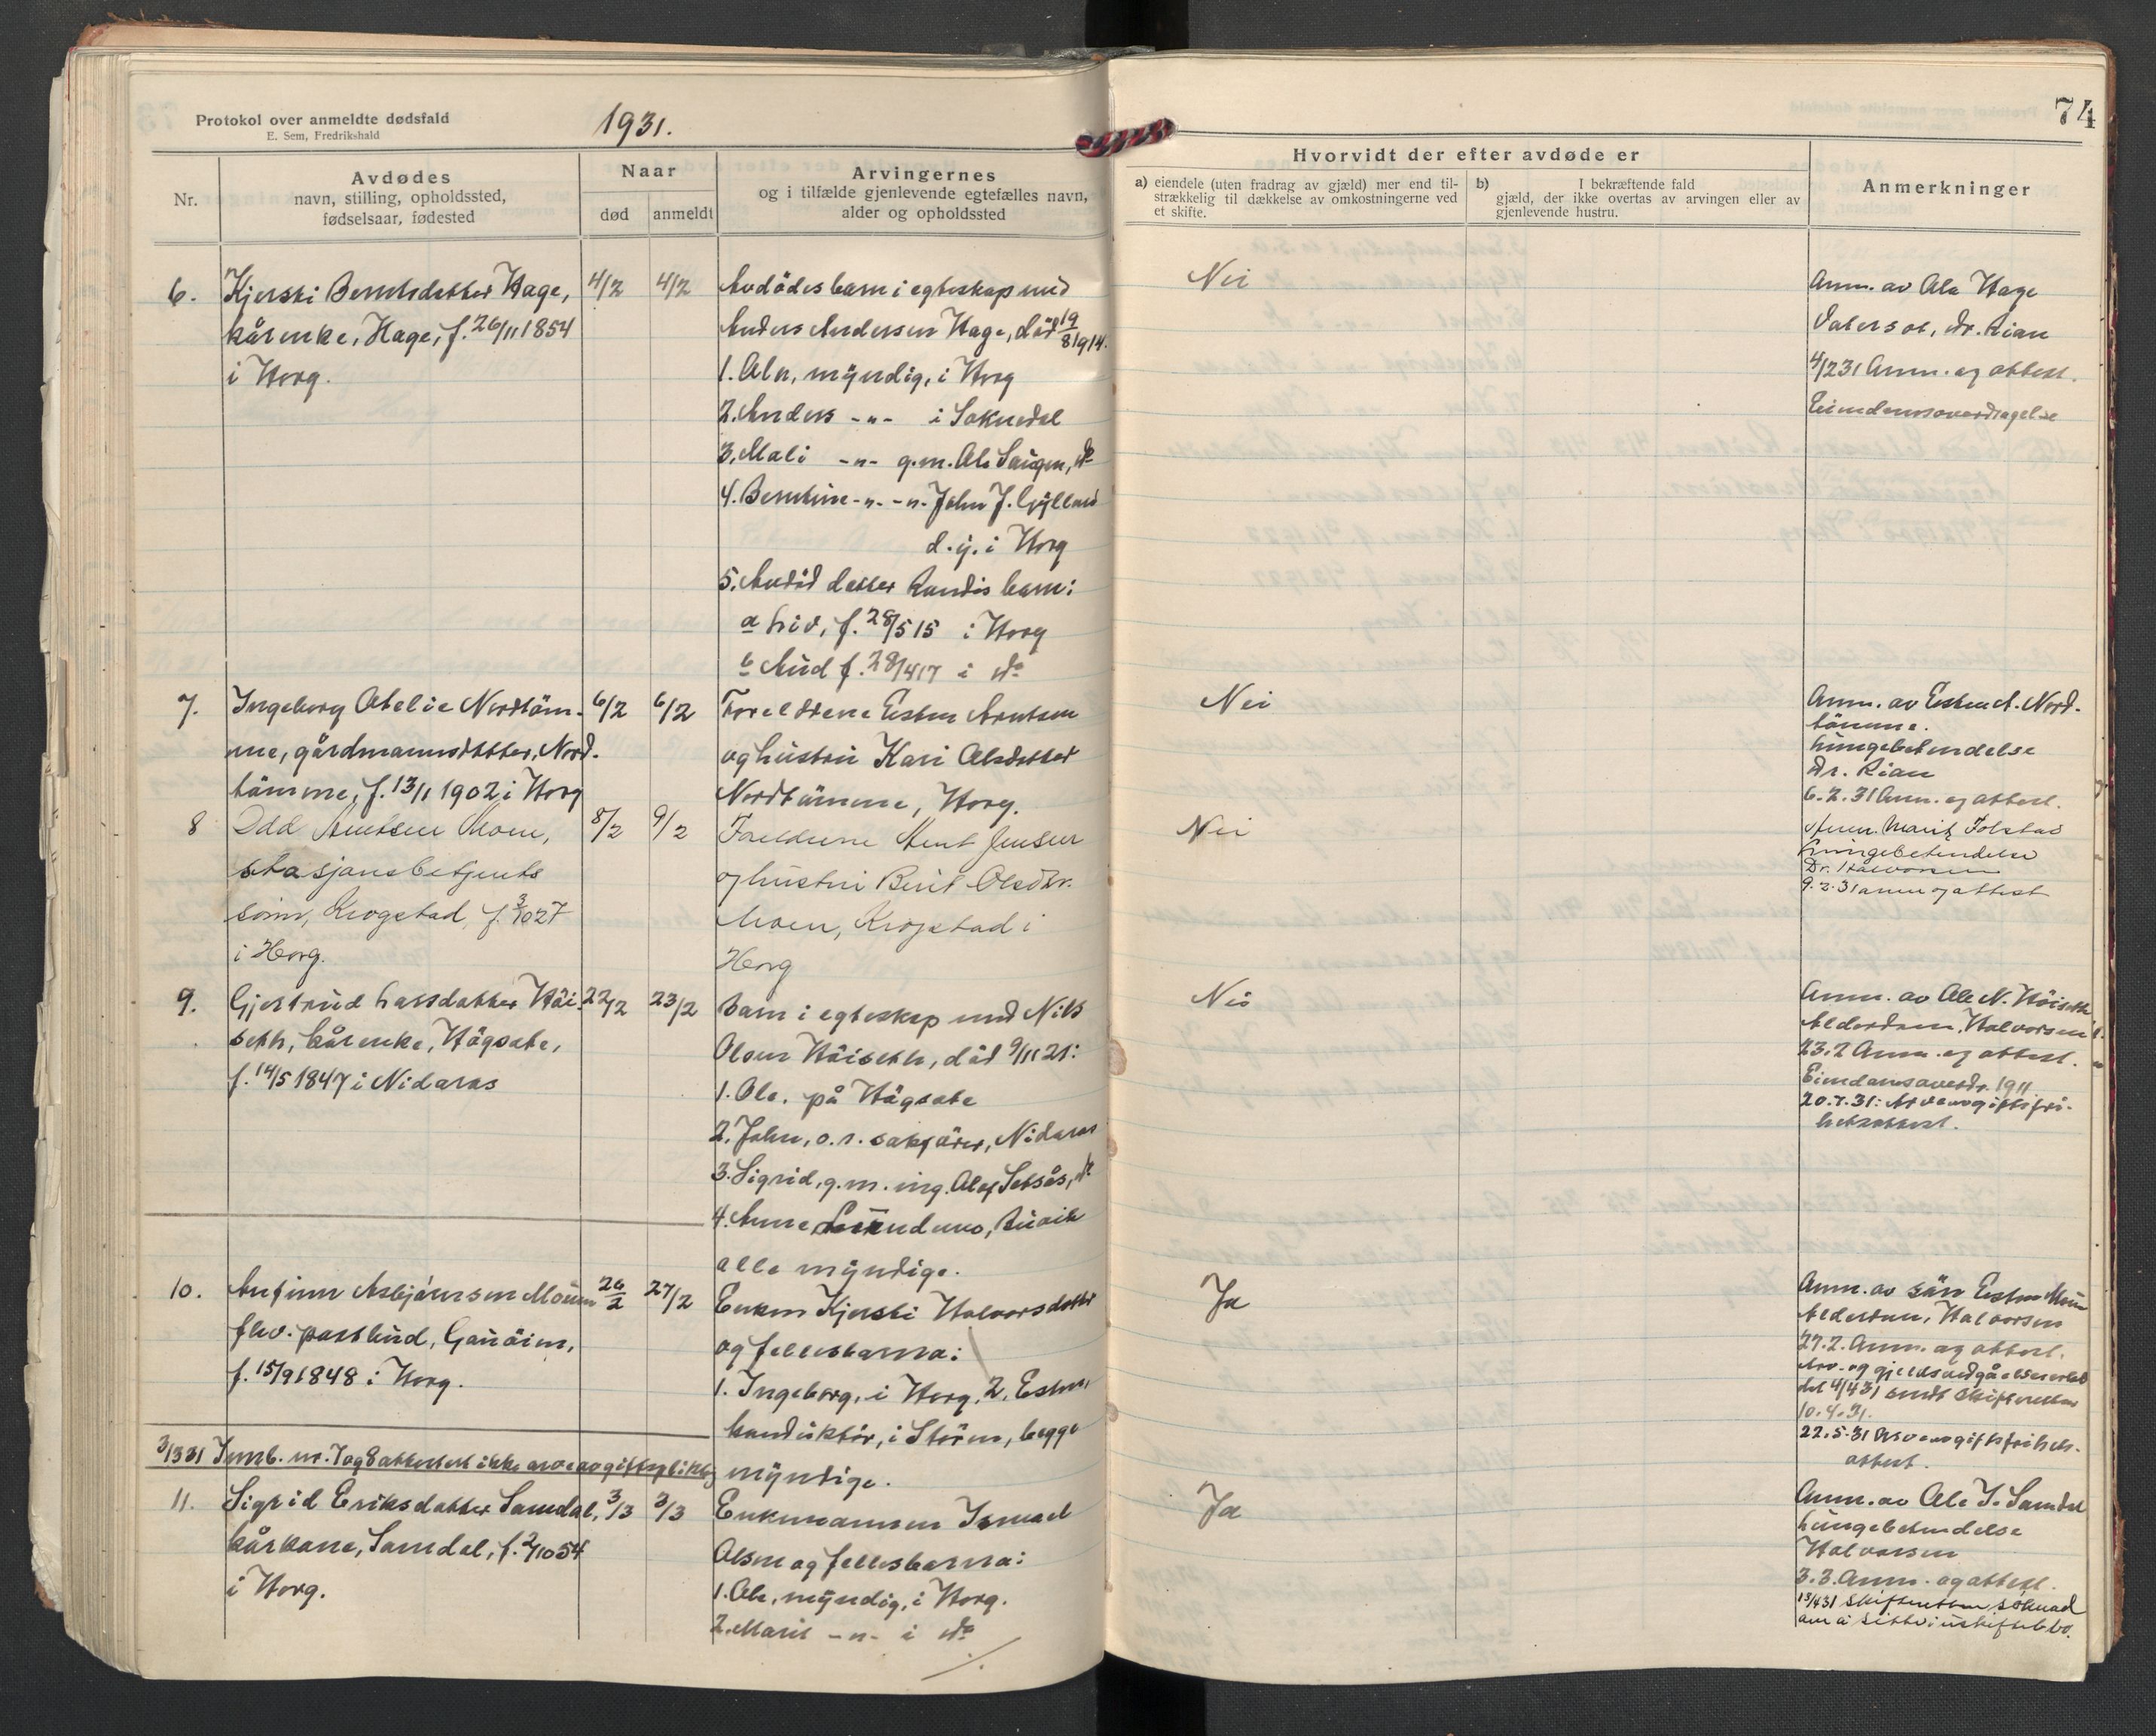 Protokol over anmeldte dødsfald
E. Sem, Fredrikshald
1931.
Nr.
Avdødes
navn, stilling, opholdssted,
fødselsaar, fødested
Naar
død
anmeldt
Arvingernes
og i tilfælde gjenlevende egtefælles navn,
alder og opholdssted
6.
Kjersti Berntsdatter Hage,
kårenke, Hage, f. 26/11 1854
i Horg.
4/2
4/2
Avdødes barn i egteskap med
Anders Andersen Hage, död 19/8 1914.
1. Ola, myndig, i Horg
2. Anders -"- i Soknedal
3. Mali -"- g.m. Ole Haugen, do
4. Berntine -"- -"- John J. Gylland
d.y. i Horg
5. Avdöd datter Randis barn:
a Liv, f. 28/5 15 i Horg
b Aud f. 28/4 17 i do
7.
Ingeborg Otelie Nordtöm-
me, gårdmannsdatter, Nord-
tömme, f. 13/1 1902 i Horg
6/2
6/2
Foreldrene Esten Arntsen
og hustru Kari Olsdatter
Nordtömme, Horg.
8
Odd Arntsen Moen,
stasjonsbetjents
sönn, Krogstad, f. 3/10 27
i Horg.
8/2
9/2
Foreldrene Arnt Jensen
og hustru Berit Olsdtr.
Moen, Krogstad i
Horg
9.
Gjertrud Larsdatter Höi-
seth, kårenke, Hågåte,
f. 14/5 1847 i Nidaros
22/2
23/2
Barn i egteskap med Nils
Olsen Höiseth, död 9/11 21:
1. Ole, på Hågåte
2. John, o.r. sakförer, Nidaros
3. Sigrid, g.m. ing. Olaf Setsås, do
4. Anne Lundemo, Ruvik
alle myndige.
10.
Anfinn Asbjörnsen Moum
fhv. postbud, Gauöien,
f. 15/9 1848 i Horg.
26/2
27/2
Enken Kjersti Halvorsdatter
og fellesbarna:
1. Ingeborg, i Horg, 2. Esten,
konduktör, i Stören, begge
myndige.
3/3 31 Innb. nr. 7 og 8 attestert ikke arveavgiftspliktig
11.
Sigrid Eriksdatter Samdal,
kårkone, Samdal, f. 2/10 54
i Horg.
3/3
3/3
Enkemannen Ismael
Olsen og fellesbarna:
1. Ole, myndig, i Horg.
2. Marit -"- i do
74
Hvorvidt der efter avdøde er
a) eiendele (uten fradrag av gjæld) mer end til-
strækkelig til dækkelse av omkostningerne ved
et skifte.
b) I bekræftende fald
gjæld, der ikke overtas av arvingen eller av
gjenlevende hustru.
Anmerkninger
Nei
Anm. av Ola Hage
dr. Rian
4/2 31 Anm. og attest.
Eiendomsoverdragelse
Nei
Anm. av Esten A. Nord-
tömme.
Lungebetendelse
Dr. Rian
6.2.31 Anm. og attest.
Nei
Anm. Marit Folstad
Lungebetendelse
Dr. Halvorsen
9.2.31 anm og attest
Nei
Anm. av Ole N. Höiseth
Alderdom, Halvorsen
23.2 Anm. og attest.
Eiendomsoverdr. 1911
20.7.31: Arveavgiftsfri-
hetsattest.
Ja
Anm. av sön Esten Moum
Alderdom, Halvorsen
27.2. Anm. og attest.
Arv- og gjeldsvedgåelse
4/4 31 sendt Skifteretten
10.4.31.
22.5.31 Arveavgiftsfrihets-
attest.
Ja
Anm. av Ole I. Samdal
Lungebetendelse
Halvorsen
3.3. Anm. og attest.
13/4 31 Skifteretten, söknad
om å sitte i uskiftet bo.